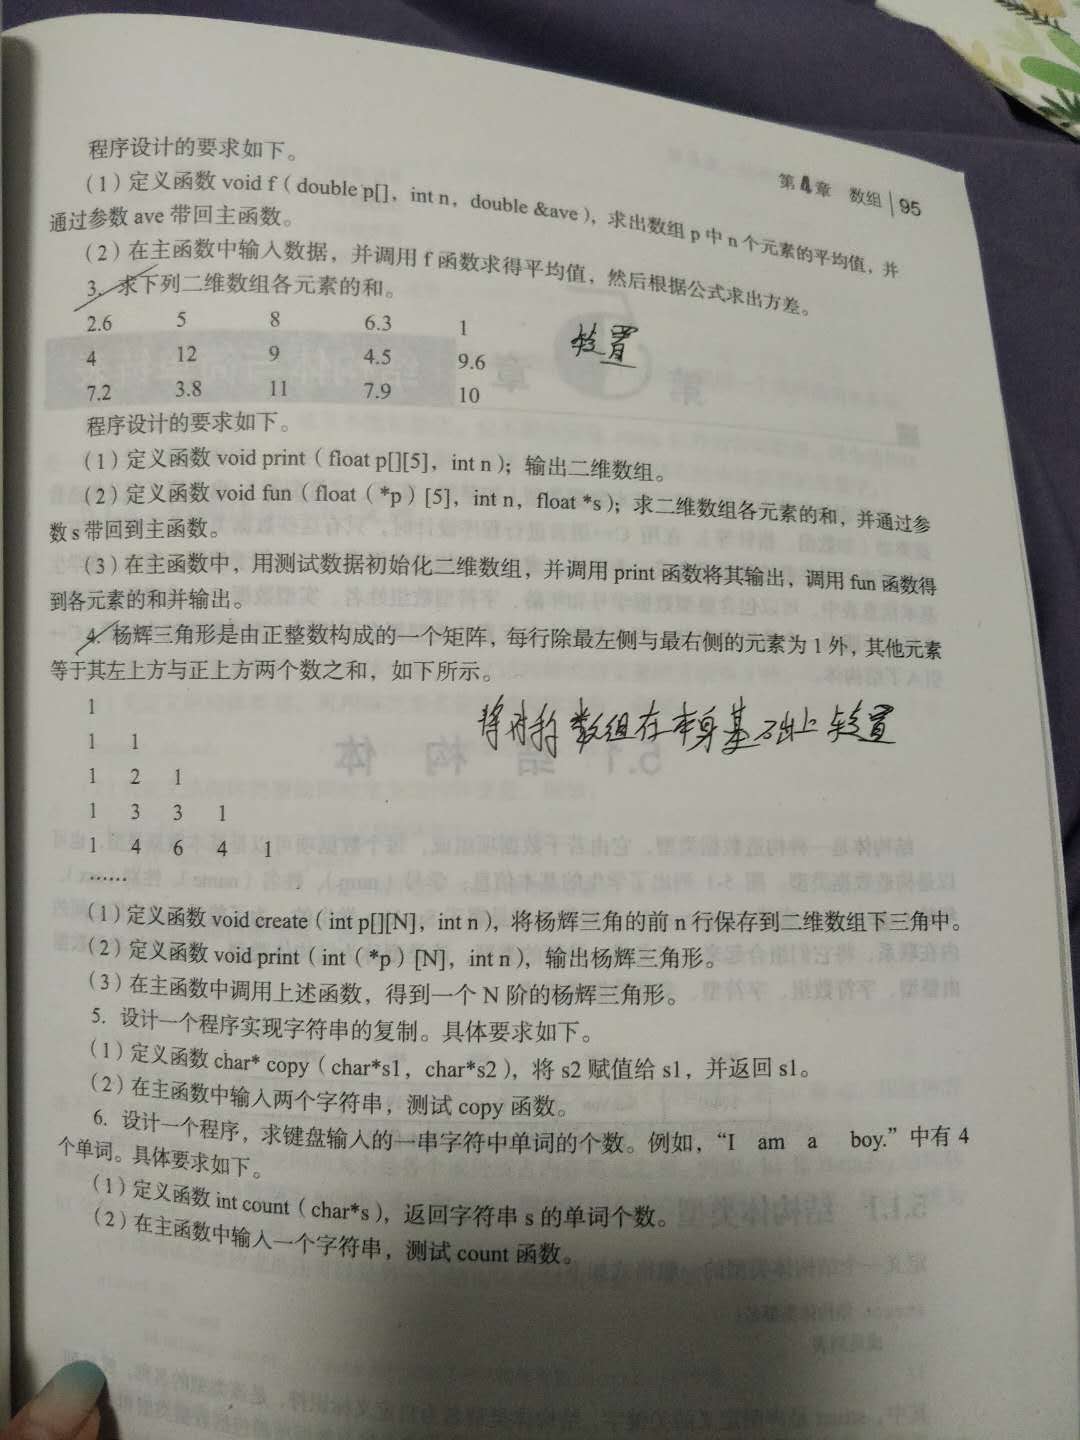 第4章 数组 | 95
程序设计的要求如下。
(1)定义函数 void f(double p[], int n, double &ave),求出数组 p 中 n 个元素的平均值,并
通过参数 ave 带回主函数。
(2)在主函数中输入数据,并调用 f 函数求得平均值,然后根据公式求出方差。
3. 求下列二维数组各元素的和。
2.6 5 8 6.3 1
4 12 9 4.5 9.6
7.2 3.8 11 7.9 10
转置
程序设计的要求如下。
(1)定义函数 void print(float p[][5], int n);输出二维数组。
(2)定义函数 void fun(float(*p)[5], int n, float *s);求二维数组各元素的和,并通过参
数 s 带回到主函数。
(3)在主函数中,用测试数据初始化二维数组,并调用 print 函数将其输出,调用 fun 函数得
到各元素的和并输出。
4. 杨辉三角形是由正整数构成的一个矩阵,每行除最左侧与最右侧的元素为 1 外,其他元素
等于其左上方与正上方两个数之和,如下所示。
1
1 1
1 2 1
1 3 3 1
1 4 6 4 1
……
将对称数组在本身基础上转置
(1)定义函数 void create(int p[][N], int n),将杨辉三角的前 n 行保存到二维数组下三角中。
(2)定义函数 void print(int(*p)[N], int n),输出杨辉三角形。
(3)在主函数中调用上述函数,得到一个 N 阶的杨辉三角形。
5. 设计一个程序实现字符串的复制。具体要求如下。
(1)定义函数 char* copy(char*s1, char*s2),将 s2 赋值给 s1,并返回 s1。
(2)在主函数中输入两个字符串,测试 copy 函数。
6. 设计一个程序,求键盘输入的一串字符中单词的个数。例如,“I am a boy.”中有 4
个单词。具体要求如下。
(1)定义函数 int count(char*s),返回字符串 s 的单词个数。
(2)在主函数中输入一个字符串,测试 count 函数。